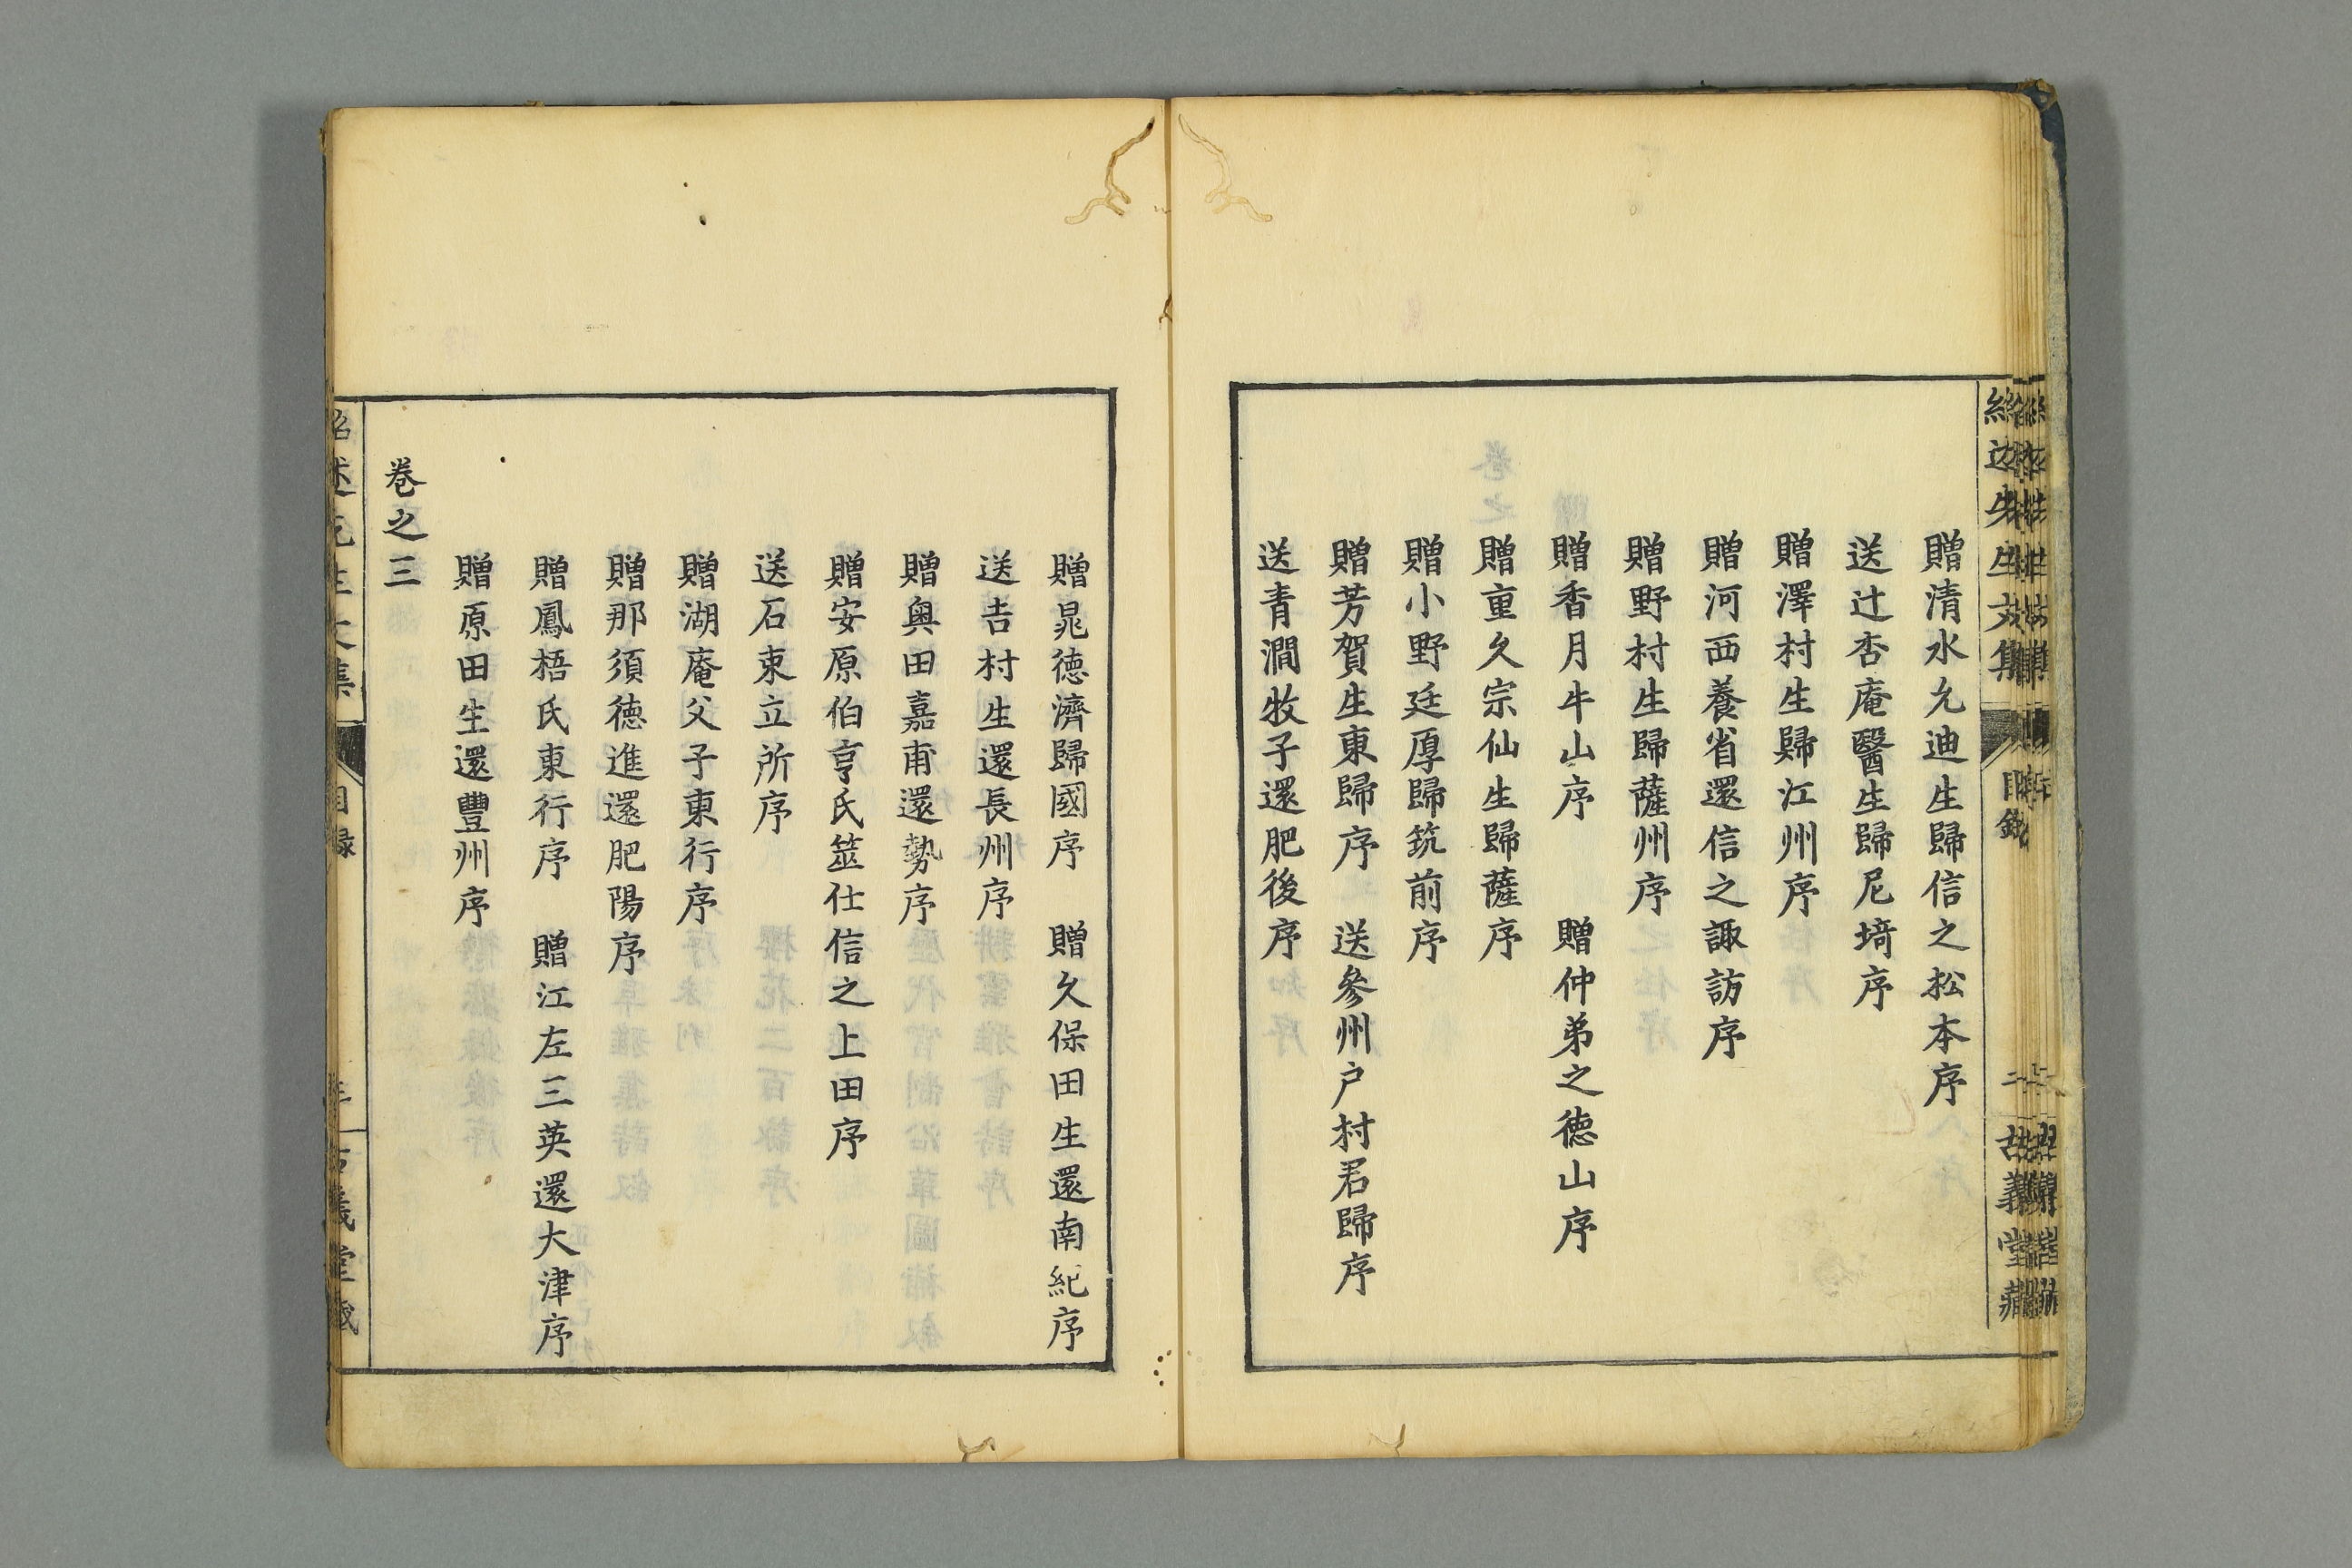 贈清水允迪生歸信之松本序
送辻杏庵醫生歸尼埼序
贈澤村生歸江州序
贈河西養省還信之諏訪序
贈野村生歸薩州序
贈香月牛山序 贈仲弟之德山序
贈重久宗仙生歸薩序
贈小野廷厚歸筑前序
贈芳賀生東歸序 送參州户村君歸序
送青澗牧子還肥後序
贈晁德濟歸國序 贈久保田生還南紀序
送吉村生還長州序
贈奥田嘉甫還勢序
贈安原伯亨氏筮仕信之上田序
送石束立所序
贈湖庵父子東行序
贈那須德進還肥陽序
贈鳳梧氏東行序 贈江左三英還大津序
贈原田生還豐州序
卷之三